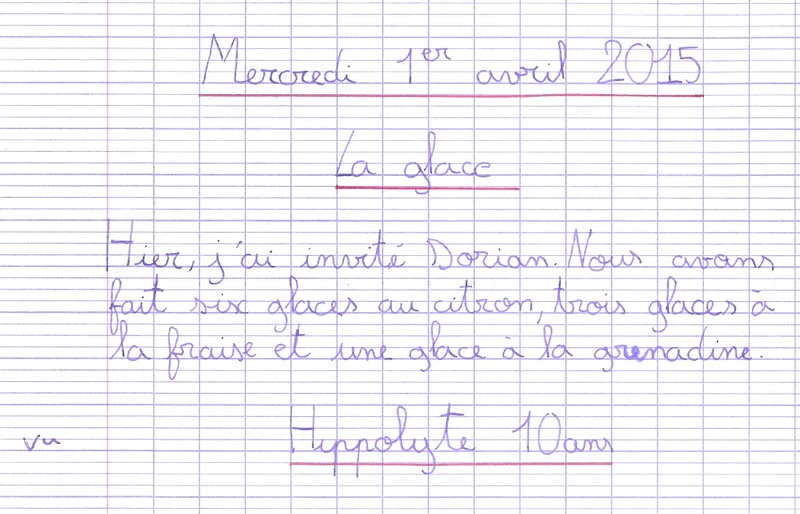 Mercredi 1er avril 2015
La glace
Hier, j'ai invité Dorian. Nous avons
fait six glaces au citron, trois glaces à
la fraise et une glace à la grenadine.
vu
Hippolyte 10ans